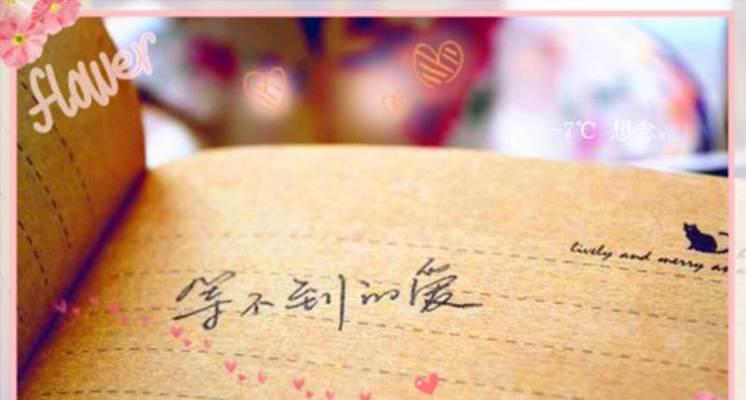 flower
-7℃ 想念。
lively and merry
等不到的爱